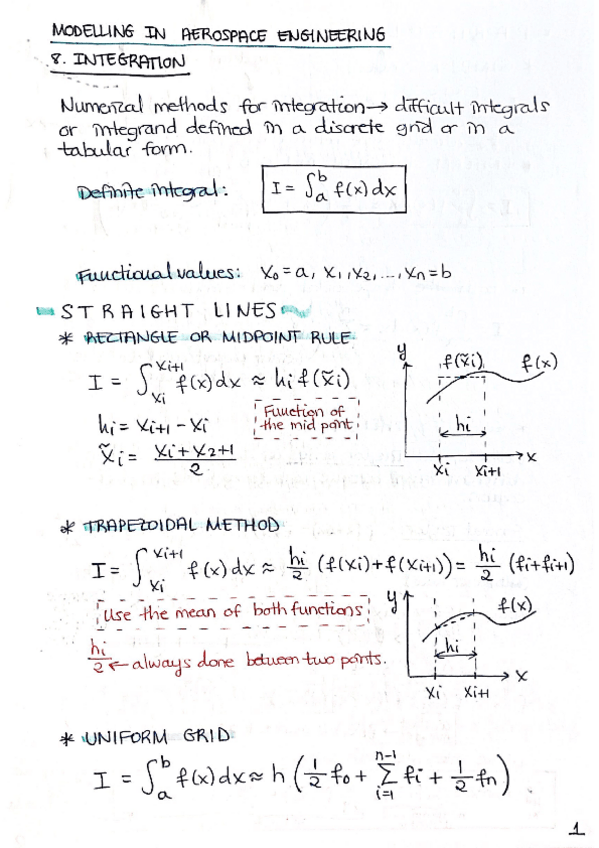 MODELLING IN AEROSPACE ENGINEERING
8. INTEGRATION
Numerical methods for integration → difficult integrals
or integrand defined in a discrete grid or in a
tabular form.
Definite integral: I = ∫_a^b f(x) dx
Functional values: x₀ = a, x₁, x₂, ..., xₙ = b
STRAIGHT LINES
* RECTANGLE OR MIDPOINT RULE
I = ∫_{xi}^{xi+1} f(x) dx ≈ hi f(x̃i)
hi = xi+1 - xi
Function of
the mid point
x̃i = (xi + x2+1)/2
y f(x̃i) f(x)
hi
xi xi+1 x
* TRAPEZOIDAL METHOD
I = ∫_{xi}^{xi+1} f(x) dx ≈ hi/2 (f(xi) + f(xi+1)) = hi/2 (fi + fi+1)
Use the mean of both functions
hi/2 ← always done between two points.
y f(x)
hi
xi xi+1 x
* UNIFORM GRID
I = ∫_a^b f(x) dx ≈ h (1/2 f₀ + Σ_{i=1}^{n-1} fi + 1/2 fn)
1